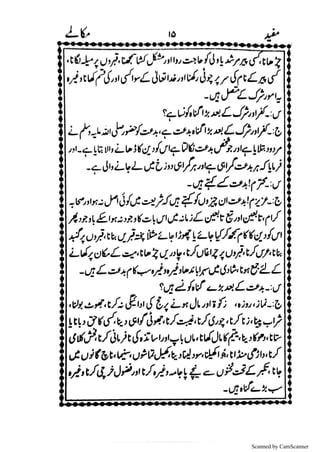 مفید ۱۵ مکالے
چڑھانا، کسی پیر مرشد یا ولی کو حاجت روا اور مشکل کشا سمجھنا، قبروں پر میلہ لگانا،
کسی پیر کے نام کی سر پر چوٹی رکھنا اور خدا تعالیٰ کے سوا کسی اور کی قسم کھانا وغیرہ
یہ امور شرک کے متصل ہیں۔
س:۔ کفر اور شرک کے بعد بڑا گناہ کونسا ہے؟
ج:۔ کفر اور شرک کے بعد بڑا گناہ بدعت ہے، بدعت کو حضور صلی اللہ علیہ وسلم نے
مردود بتلایا ہے اور جو شخص بدعت نکالتا ہے اس کو دین کا ڈھانے والا بتایا ہے۔ اور
فرمایا کہ ہر بدعت گمراہی ہے اور ہر گمراہی دوزخ میں لے جانے والی ہے۔
س:۔ محترم! بدعت کسے کہتے ہیں۔
ج:۔ عزیزم! بدعت ان چیزوں کو کہتے ہیں کہ شریعت میں کوئی اصل نہ ہو اور صحابہ
کرام، تابعین اور تبع تابعین کے زمانہ میں اس بات کا وجود نہ ہو اسکے باوجود پھر
اس کو دین کا کام سمجھ کر کیا جائے یا چھوڑا جائے مثلاً پختہ قبریں بنانا، قبروں پر گنبد
بنانا، عرس کرنا، قبروں پر چراغاں کرنا، چادریں چڑھانا، میت کے مکان پر کھانے
کے لئے جمع ہونا، شادی میں سہرا باندھنا وغیرہ وغیرہ سب کام بدعت کے ہیں۔
س:۔ بدعت کے بعد بڑے گناہ کونسے ہیں؟
ج:۔ نماز، روزہ، زکوٰۃ اور مال ہونے پر حج کی ادائیگی نہ کرنا، جھوٹ بولنا،
شراب پینا، زنا کرنا، چوری کرنا، غیبت کرنا، جھوٹی گواہی دینا، کسی کا حق دبانا یا
ستانا، دھوکا دینا، یتیم کا مال کھانا، ماں باپ اور اساتذہ کی نافرمانی کرنا، فحش کلامی
کرنا، داڑھی منڈانا، جُوا کھیلنا، سود لینا دینا، کھیل تماشوں، سینما، ناچ گانوں میں
جانا، تکبر کے تحت ٹخنوں سے نیچے پاجامہ وغیرہ کرنا اور فضول خرچی کرنا وغیرہ
سب بڑے گناہ ہیں۔
Scanned by CamScanner